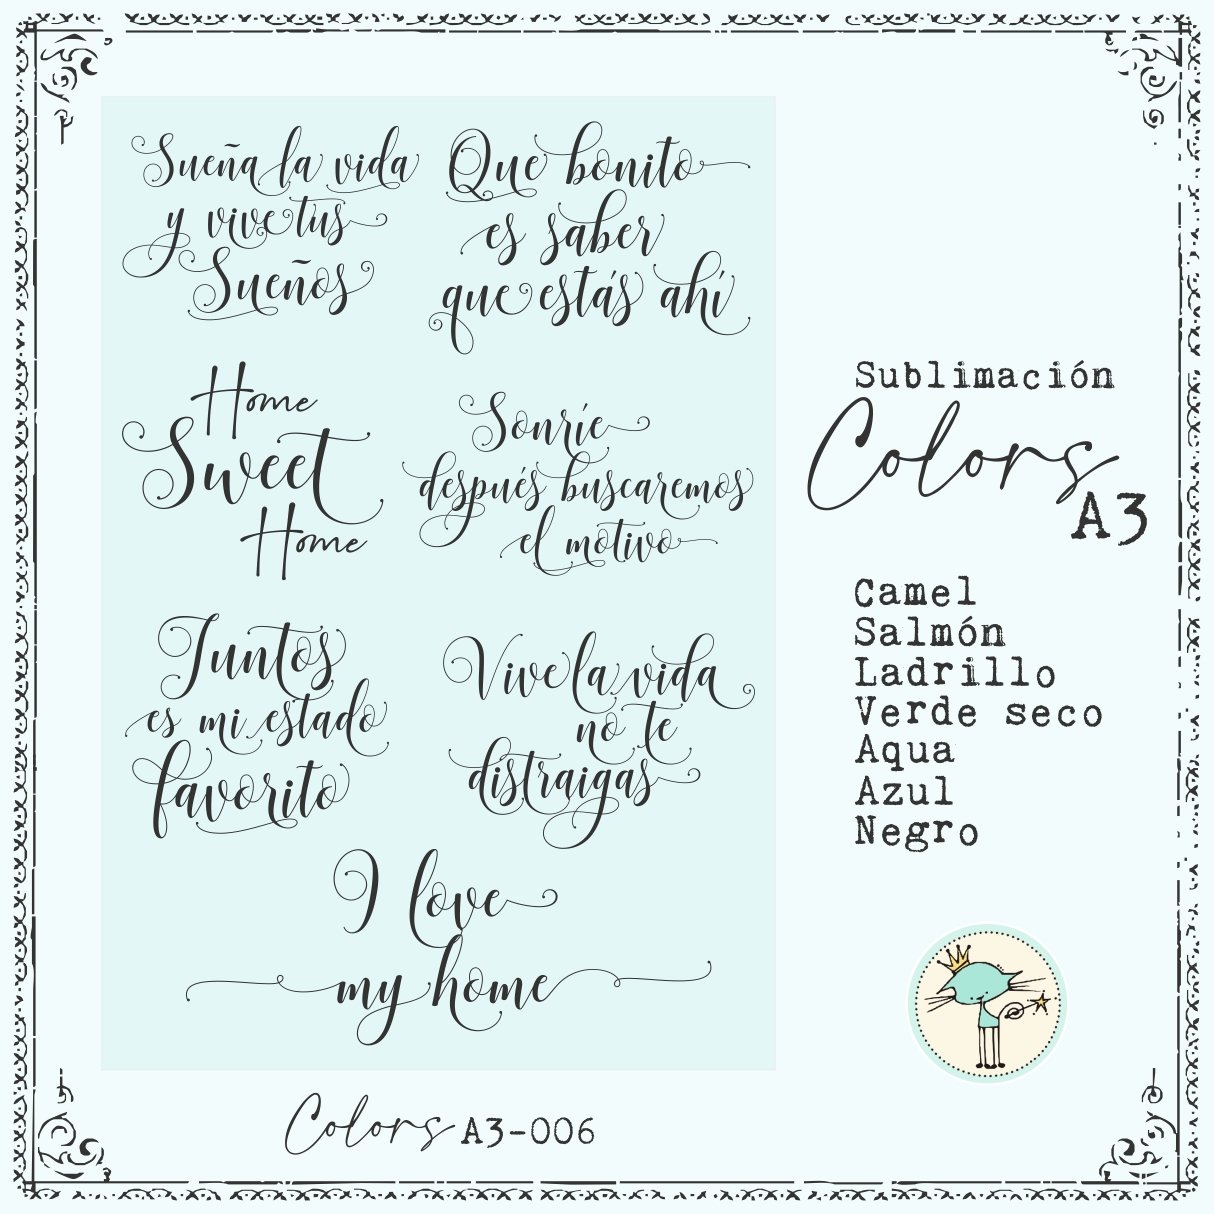 Sueña la vida
y vive tus
Sueños
Que bonito
es saber
que estás ahí
Home
Sweet
Home
Sonríe
después buscaremos
el motivo
Juntos
es mi estado
favorito
Vive la vida
no te
distraigas
I love
my home
Colors A3-006
Sublimación
Colors
A3
Camel
Salmón
Ladrillo
Verde seco
Aqua
Azul
Negro